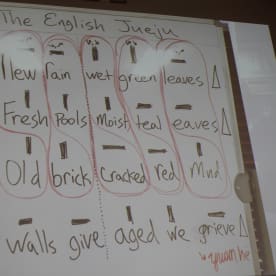 The English Jueju
New rain wet green leaves
Fresh Pools Moist teal eaves
Old brick Cracked red Mud
Walls give aged we grieve